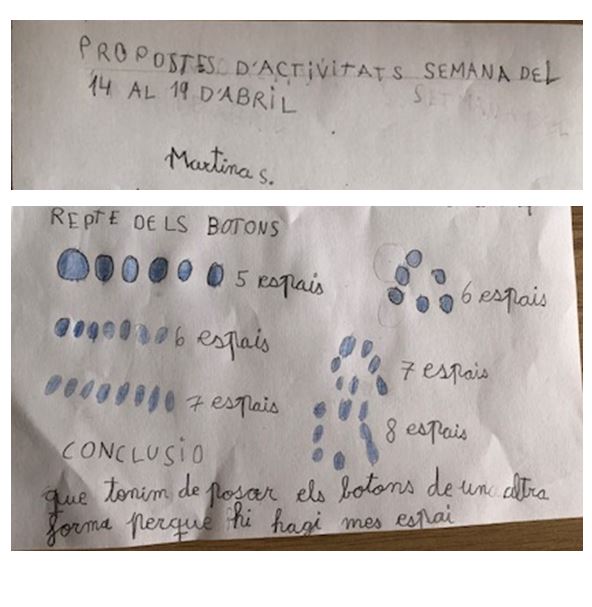 PROPOSTES D'ACTIVITATS SEMANA DEL
14 AL 19 D'ABRIL
Martina S.
REPTE DELS BOTONS
5 espais
6 espais
6 espais
7 espais
7 espais
8 espais
CONCLUSIO
que tonim de posar els botons de una altra
forma perque hi hagi mes espai